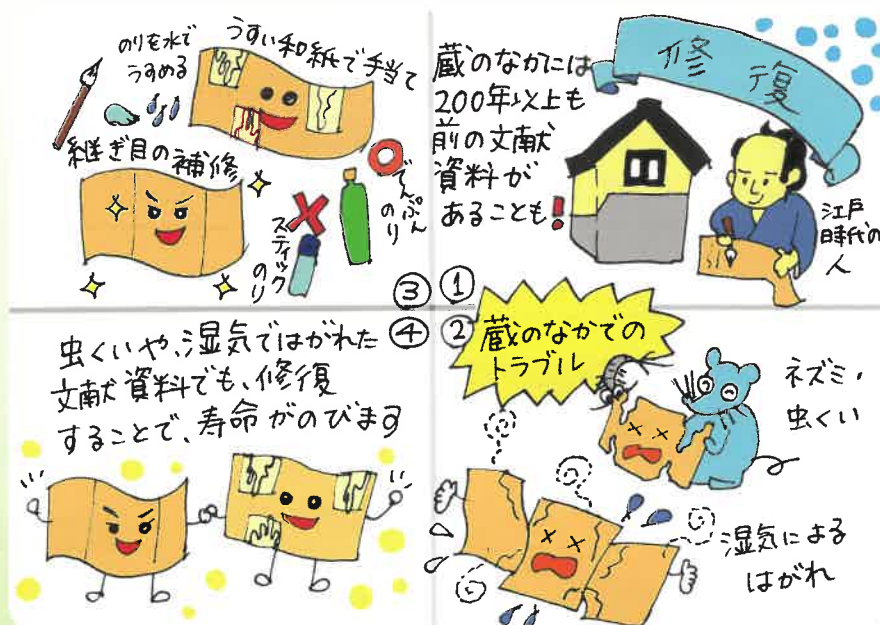 修復
①
蔵のなかには
200年以上も
前の文献
資料が
あることも!
江戸
時代の
人
②
蔵のなかでの
トラブル
ネズミ・
虫くい
湿気による
はがれ
③
うすい和紙で手当て
のりを水で
うすめる
継ぎ目の補修
でんぷん
のり
スティック
のり
④
虫くいや、湿気ではがれた
文献資料でも、修復
することで、寿命がのびます